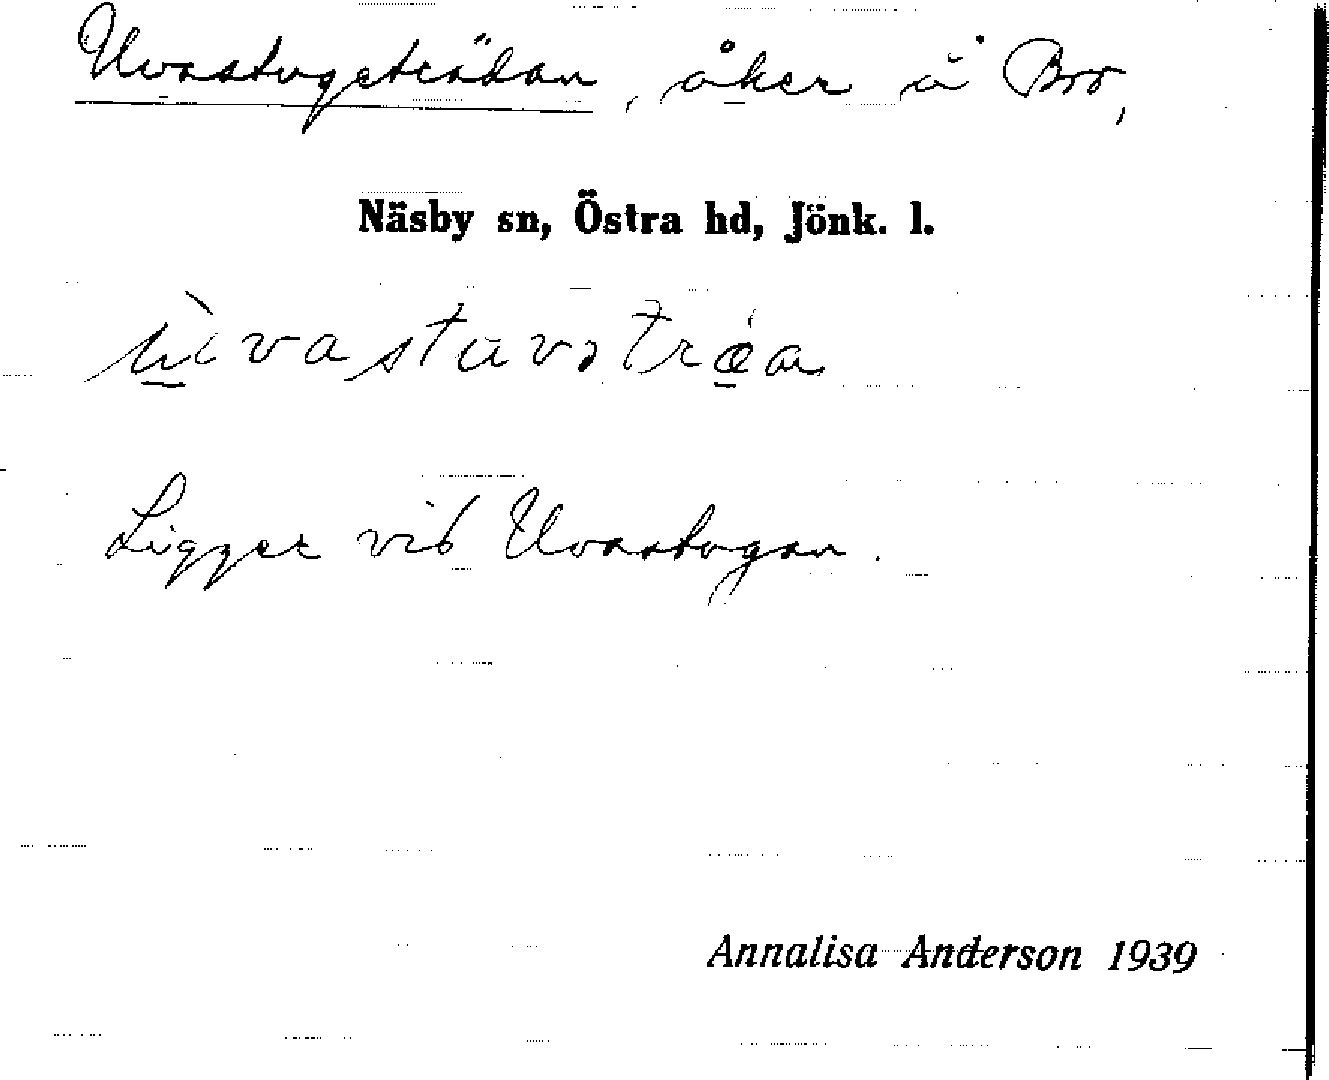 Uvastugeträdan, åker å Bro,
Näsby sn, Östra hd, Jönk. l.
Ligger vid Uvastugan.
Annalisa Anderson 1939